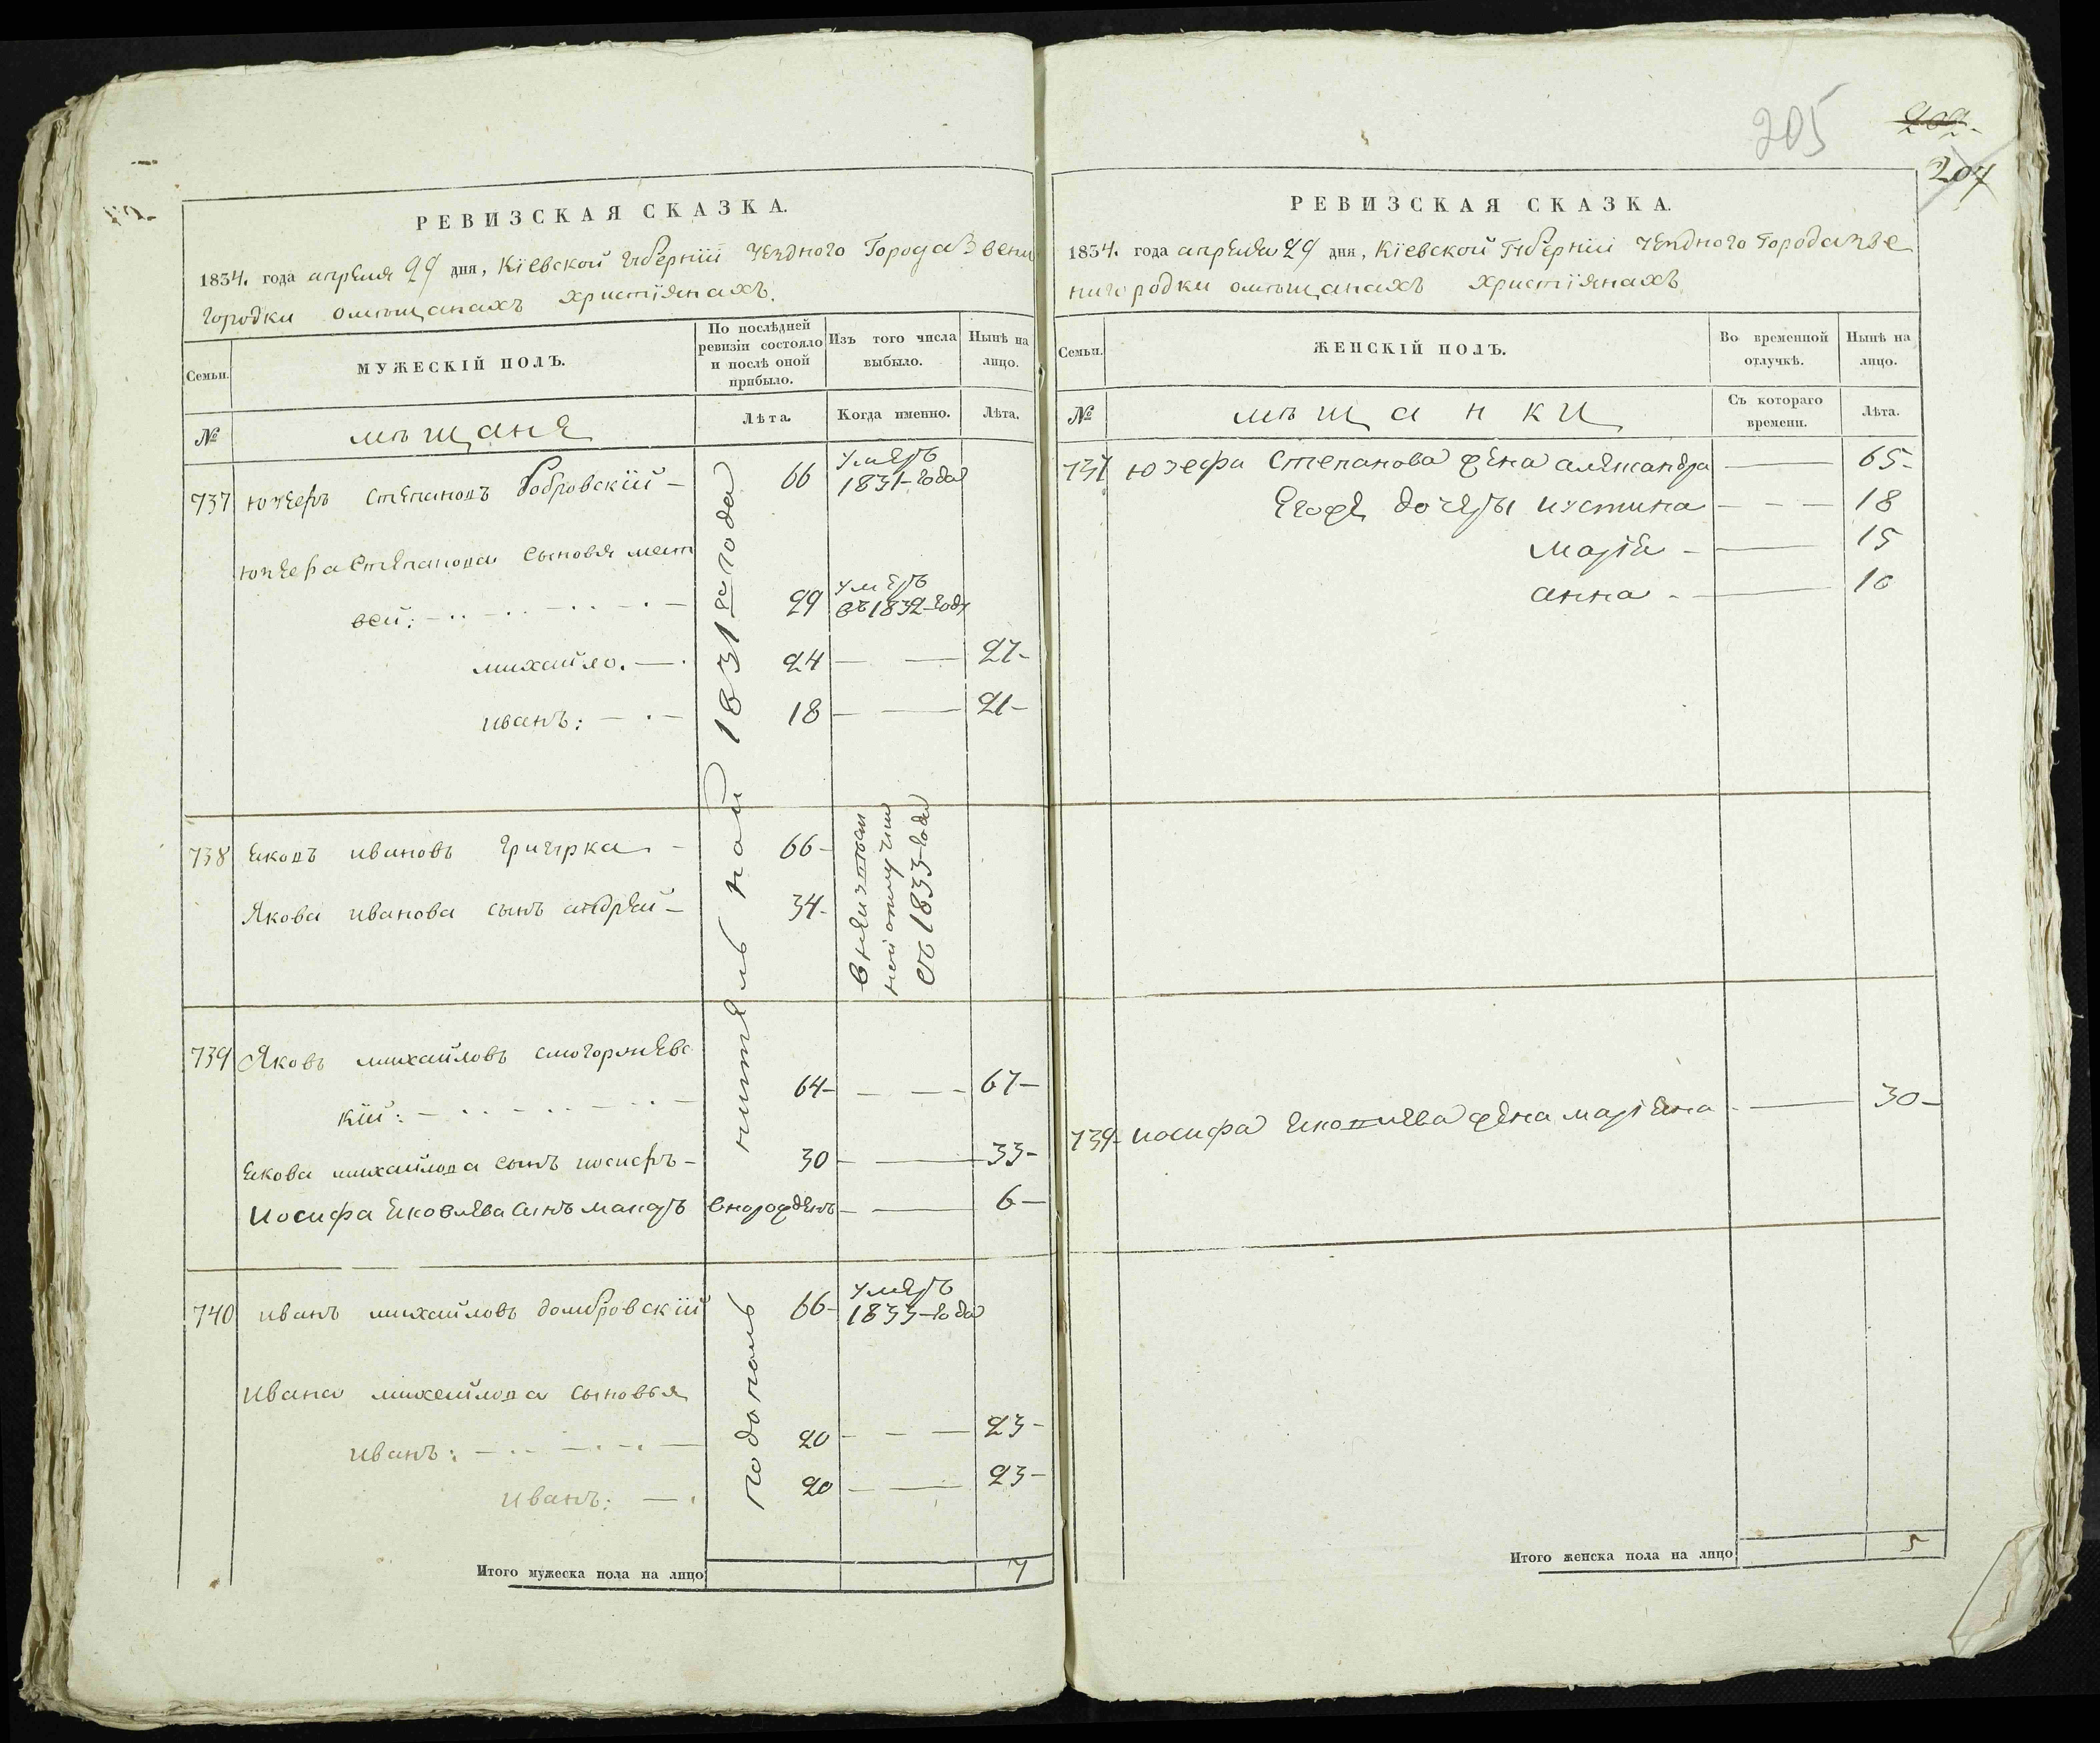 РЕВИЗСКАЯ СКАЗКА.
1834. года апреля 29 дня, Кіевской Губерніи уездного Города Звени
городки о мѣщанахъ христіянахъ.
Семьи.
МУЖЕСКІЙ ПОЛЪ.
По послѣдней ревизіи состояло и послѣ оной прибыло.
Изъ того числа выбыло.
Нынѣ на лицо.
№
мѣщане
Лѣта.
Когда именно.
Лѣта.
737 Юзефъ Степановъ Бобровскій — 66 умеръ 1831 года
Юзефа Степанова сыновя мат
вей: 29 умеръ въ 1832 году
михайло. — 24 — — 27—
иванъ: — 18 — — 21—
738 Яковъ ивановъ — 66—
Якова иванова сынъ андрей — 34—
съ 1833 года
739 Яковъ михайловъ
кій: — 64— — — 67—
Якова михайлова сынъ иосифъ — 30— — 33—
Иосифа Яковлева синъ макаръ вноророжденъ — — 6—
740 иванъ михайловъ домбровскій 66— умеръ 1833 года
Ивана михайлова сыновья
иванъ: — 20 — — 23—
иванъ: — 20 — — 23—
подополнительной 1831го года
Итого мужеска пола на лицо 7
205
202
204
РЕВИЗСКАЯ СКАЗКА.
1834. года апреля 29 дня, Кіевской Губерніи уездного города Зве
нигородки о мѣщанахъ христіянахъ
Семьи.
ЖЕНСКІЙ ПОЛЪ.
Во временной отлучкѣ.
Нынѣ на лицо.
№
мѣщанки
Съ котораго времени.
Лѣта.
737 Юзефа Степанова жена александра — 65—
Егоже дочеры иустина — — — 18
марія — — 15
анна — — 10
739 иосифа Яковлева жена маріяна — 30—
Итого женска пола на лицо 5